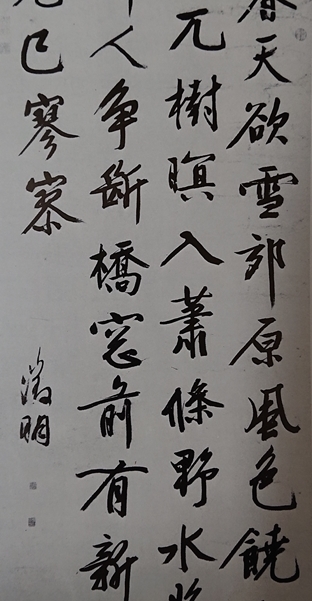 天欲雪郊原風色饒
兀樹暝入蕭條野水
人争斷橋窓前有新
已寥寥
徵明